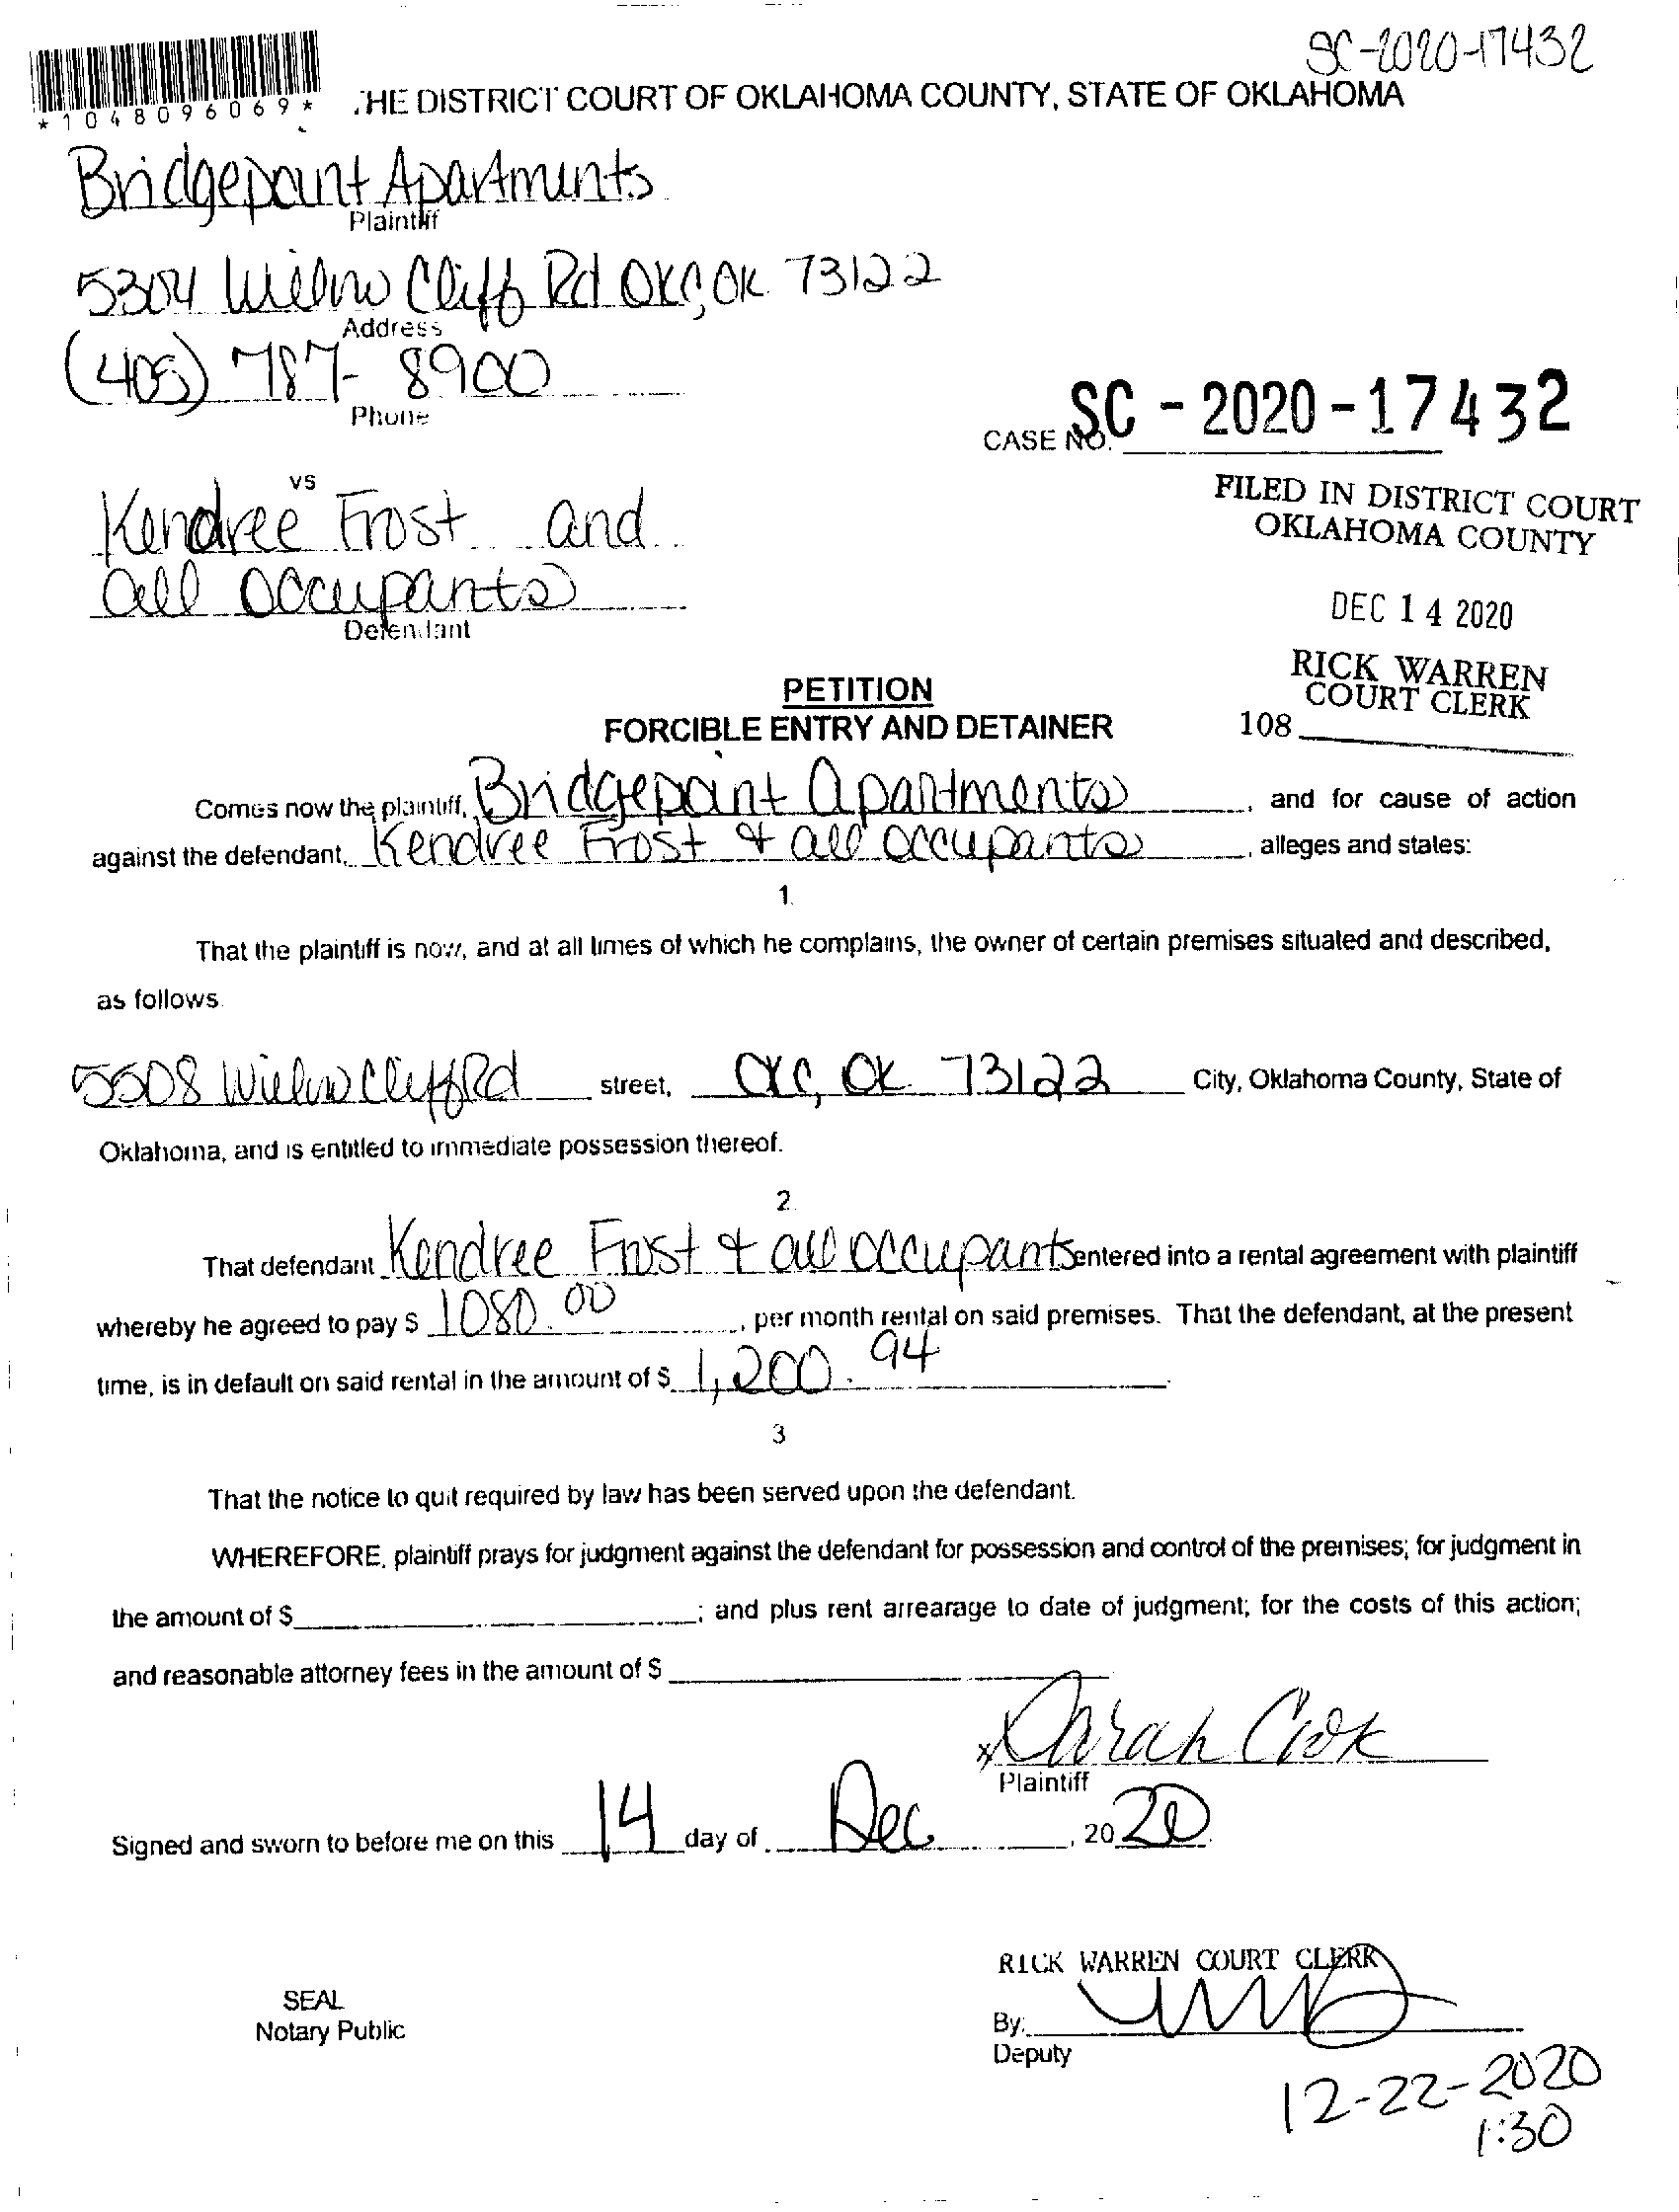 SC-2020-17432
*1048096069*
THE DISTRICT COURT OF OKLAHOMA COUNTY, STATE OF OKLAHOMA
Bridgepoint Apartments
Plaintiff
5304 Willow Cliff Rd OKC, OK 73122
Address
(405) 787-8900
Phone
CASE NO. SC-2020-17432
vs
Kendree Frost and
all occupants
Defendant
FILED IN DISTRICT COURT
OKLAHOMA COUNTY
DEC 14 2020
RICK WARREN
COURT CLERK
108
PETITION
FORCIBLE ENTRY AND DETAINER
Comes now the plaintiff, Bridgepoint Apartments, and for cause of action
against the defendant, Kendree Frost & all occupants, alleges and states:
1.
That the plaintiff is now, and at all times of which he complains, the owner of certain premises situated and described,
as follows
5508 Willow Cliff Rd street, OKC, OK 73122 City, Oklahoma County, State of
Oklahoma, and is entitled to immediate possession thereof.
2.
That defendant Kendree Frost & all occupants entered into a rental agreement with plaintiff
whereby he agreed to pay $ 1080.00, per month rental on said premises. That the defendant, at the present
time, is in default on said rental in the amount of $ 1,200.94.
3
That the notice to quit required by law has been served upon the defendant.
WHEREFORE, plaintiff prays for judgment against the defendant for possession and control of the premises; for judgment in
the amount of $ ; and plus rent arrearage to date of judgment; for the costs of this action;
and reasonable attorney fees in the amount of $
x Sarah Cook
Plaintiff
Signed and sworn to before me on this 14 day of Dec, 2020.
RICK WARREN COURT CLERK
SEAL
Notary Public
By:
Deputy
12-22-2020
1:30